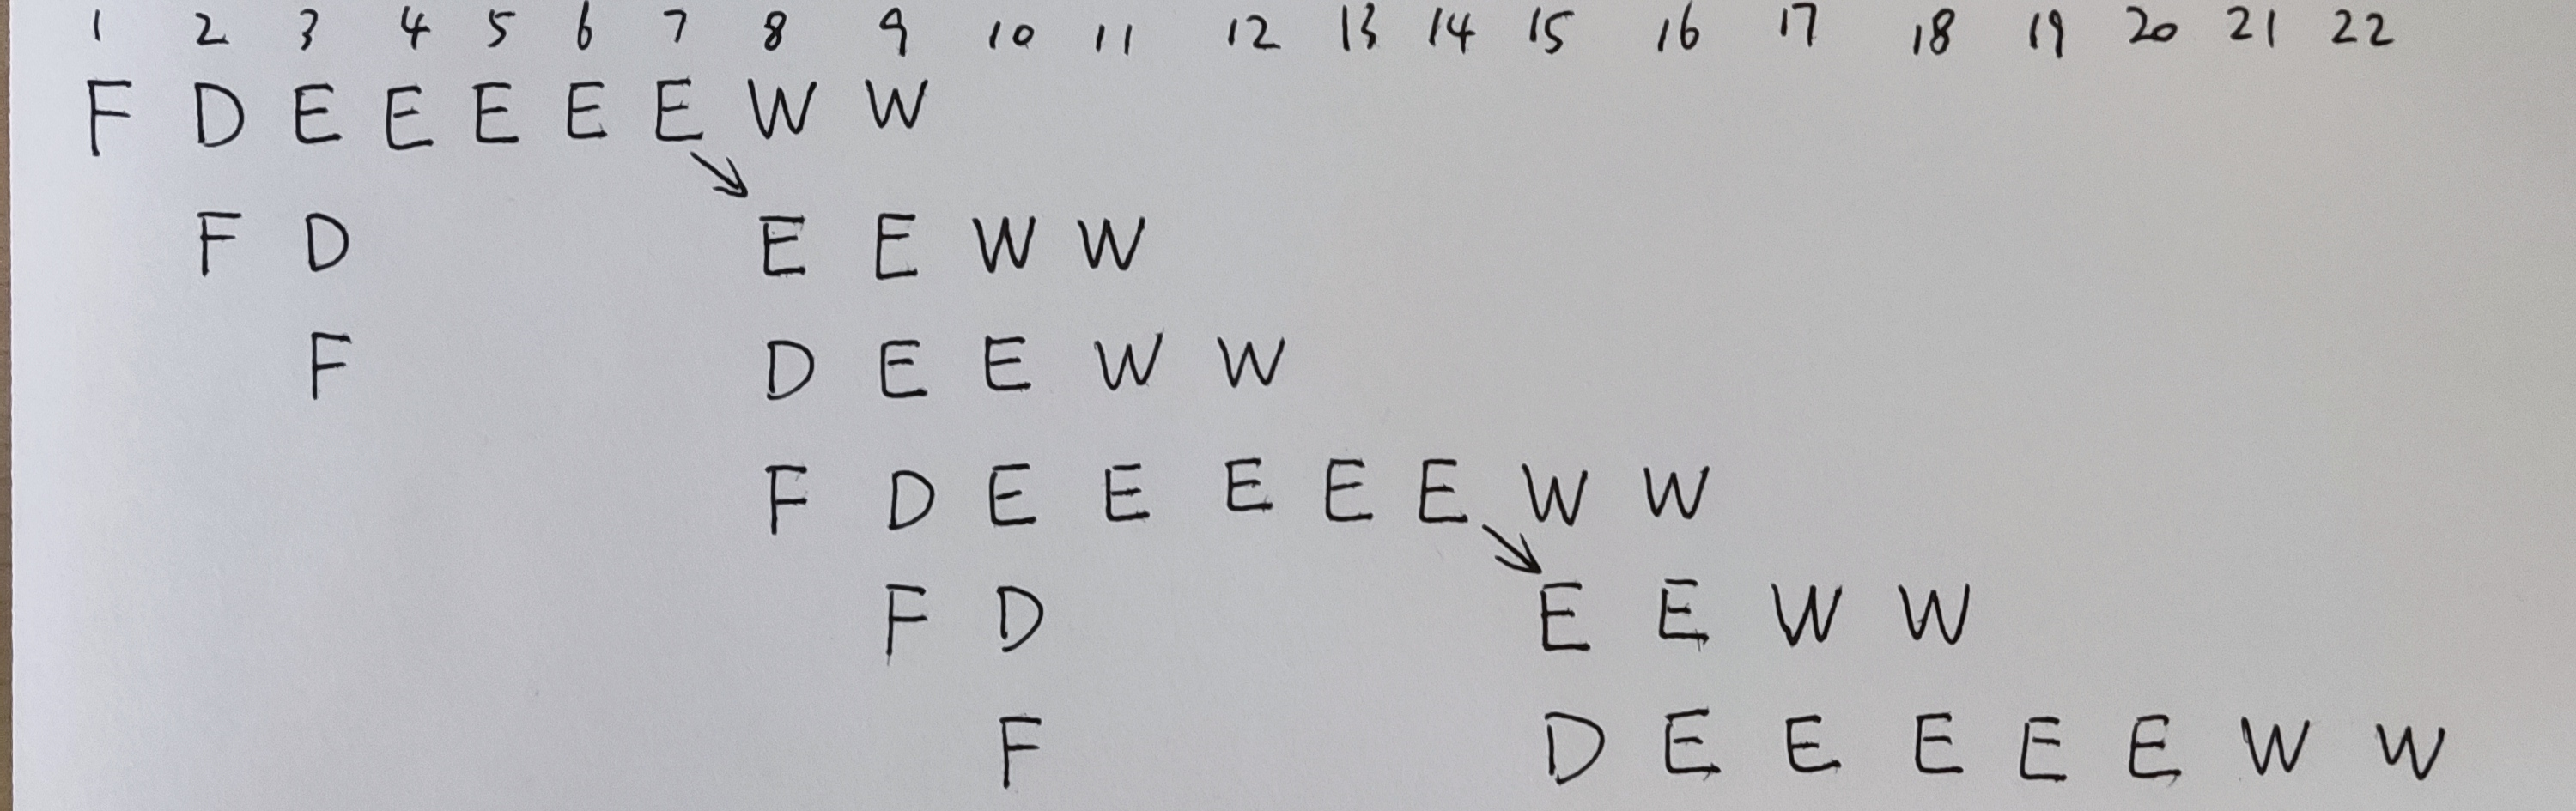 1 2 3 4 5 6 7 8 9 10 11 12 13 14 15 16 17 18 19 20 21 22
F D E E E E E W W
F D E E W W
F D E E W W
F D E E E E E W W
F D E E W W
F D E E E E E W W